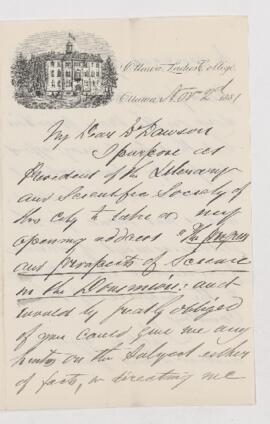 Ottawa Ladies College,
Ottawa, Nov 2nd 1881
My Dear Dr Dawson
I purpose as
President of the Literary
and Scientific Society of
this city to take as my
opening address "The Progress
and Prospects of Science
in the Dominion" and
would be greatly obliged
if you could give me any
hints on the subject either
of facts, or directing me